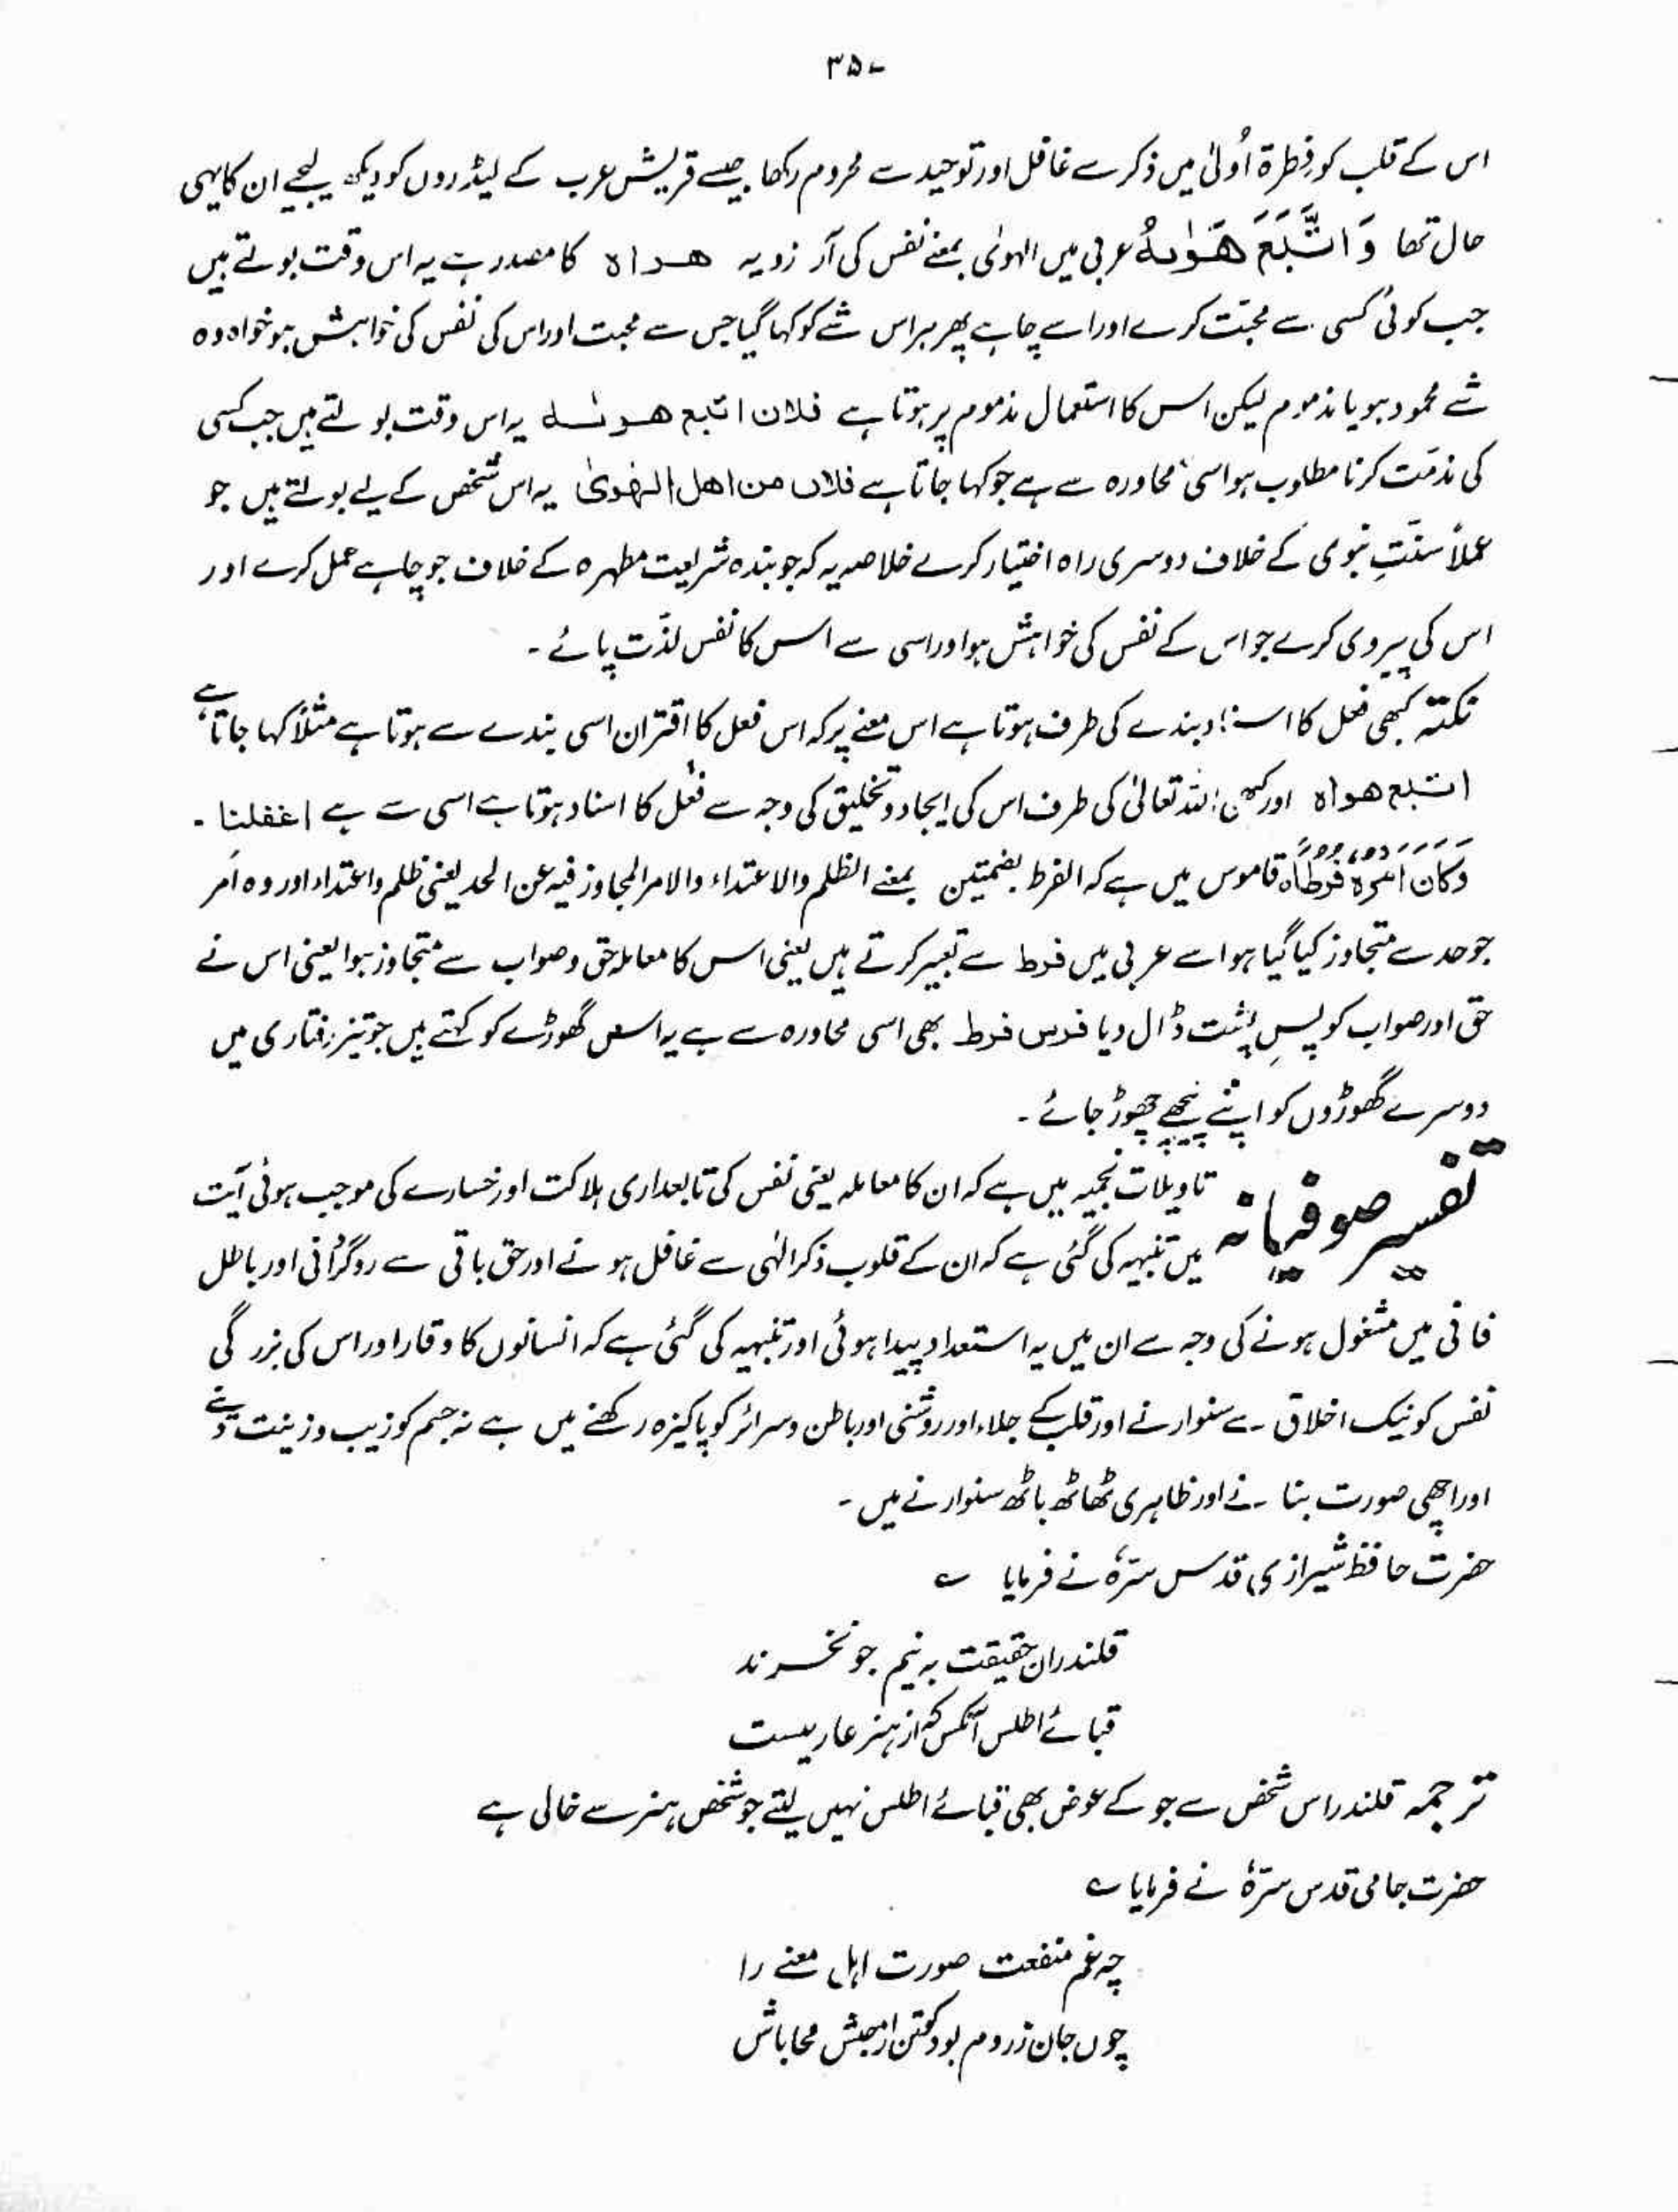 ۳۵۰
اس کے قلب کو فِطرۃ اُولیٰ میں ذکر سے غافل اور توحید سے محروم رکھا جیسے قریش عرب کے لیڈروں کو دیکھ لیجیے ان کا یہی
حال تھا وَ اتَّبَعَ هَوٰىهُ عربی میں الہوٰی بمعنے نفس کی آرزو یہ هواه کا مصدر ہے یہ اس وقت بولتے ہیں
جب کوئی کسی سے محبّت کرے اور اسے چاہے پھر ہر اس شے کو کہا گیا جس سے محبت اور اس کی نفس کی خواہش ہو خواہ وہ
شے محمود ہو یا مذموم لیکن اس کا استعمال مذموم پر ہوتا ہے فلان اتبع هوٰىه یہ اس وقت بولتے ہیں جب کسی
کی مذمّت کرنا مطلوب ہو اسی محاورہ سے ہے جو کہا جاتا ہے فلان من اهل الهوىٰ یہ اس شخص کے لیے بولتے ہیں جو
عملاً سنّتِ نبوی کے خلاف دوسری راہ اختیار کرے خلاصہ یہ کہ جو بندہ شریعت مطہرہ کے خلاف جو چاہے عمل کرے اور
اس کی پیروی کرے جو اس کے نفس کی خواہش ہو اور اسی سے اس کا نفس لذّت پائے ۔
نکتہ کبھی فعل کا اسناد بندے کی طرف ہوتا ہے اس معنے پر کہ اس فعل کا اقتران اسی بندے سے ہوتا ہے مثلاً کہا جاتا ہے
اتبع هواه اور کبھی اللہ تعالیٰ کی طرف اس کی ایجاد و تخلیق کی وجہ سے فعل کا اسناد ہوتا ہے اسی سے ہے اغفلنا ۔
وَكَانَ اَمْرُهٗ فُرُطًا۝ قاموس میں ہے کہ الفرط بضمتین بمعنے الظلم والاعتداء والامر المجاوز فیہ عن الحد یعنی ظلم و اعتداء اور وہ امر
جو حد سے متجاوز کیا گیا ہو اسے عربی میں فرط سے تعبیر کرتے ہیں یعنی اس کا معاملہ حق و صواب سے متجاوز ہوا یعنی اس نے
حق اور صواب کو پسِ پشت ڈال دیا فرس فرط بھی اسی محاورہ سے ہے یہ اس گھوڑے کو کہتے ہیں جو تیز رفتاری میں
دوسرے گھوڑوں کو اپنے پیچھے چھوڑ جائے ۔
تفسیر صوفیانہ تاویلات نجمیہ میں ہے کہ ان کا معاملہ یعنی نفس کی تابعداری ہلاکت اور خسارے کی موجب ہوئی آیت
میں تنبیہ کی گئی ہے کہ ان کے قلوب ذکر الٰہی سے غافل ہونے اور حق باقی سے روگرانی اور باطل
فانی میں مشغول ہونے کی وجہ سے ان میں یہ استعداد پیدا ہوئی اور تنبیہ کی گئی ہے کہ انسانوں کا وقار اور اس کی بزرگی
نفس کو نیک اخلاق سے سنوارنے اور قلب کے جلاء اور روشنی اور باطن و سرائر کو پاکیزہ رکھنے میں ہے نہ جسم کو زیب و زینت دینے
اور اچھی صورت بنانے اور ظاہری ٹھاٹھ باٹھ سنوارنے میں ۔
حضرت حافظ شیرازی قدس سرّہٗ نے فرمایا ؎
قلندران حقیقت بہ نیم جو نخرند
قبائے اطلس آنکس کہ از ہنر عاریست
ترجمہ قلندر اس شخص سے جو کے عوض بھی قبائے اطلس نہیں لیتے جو شخص ہنر سے خالی ہے
حضرت جامی قدس سرّہٗ نے فرمایا ؎
چہ غم منفعت صورت اہل معنے را
چوں جان زروم بود گوتن از حبش محاباش